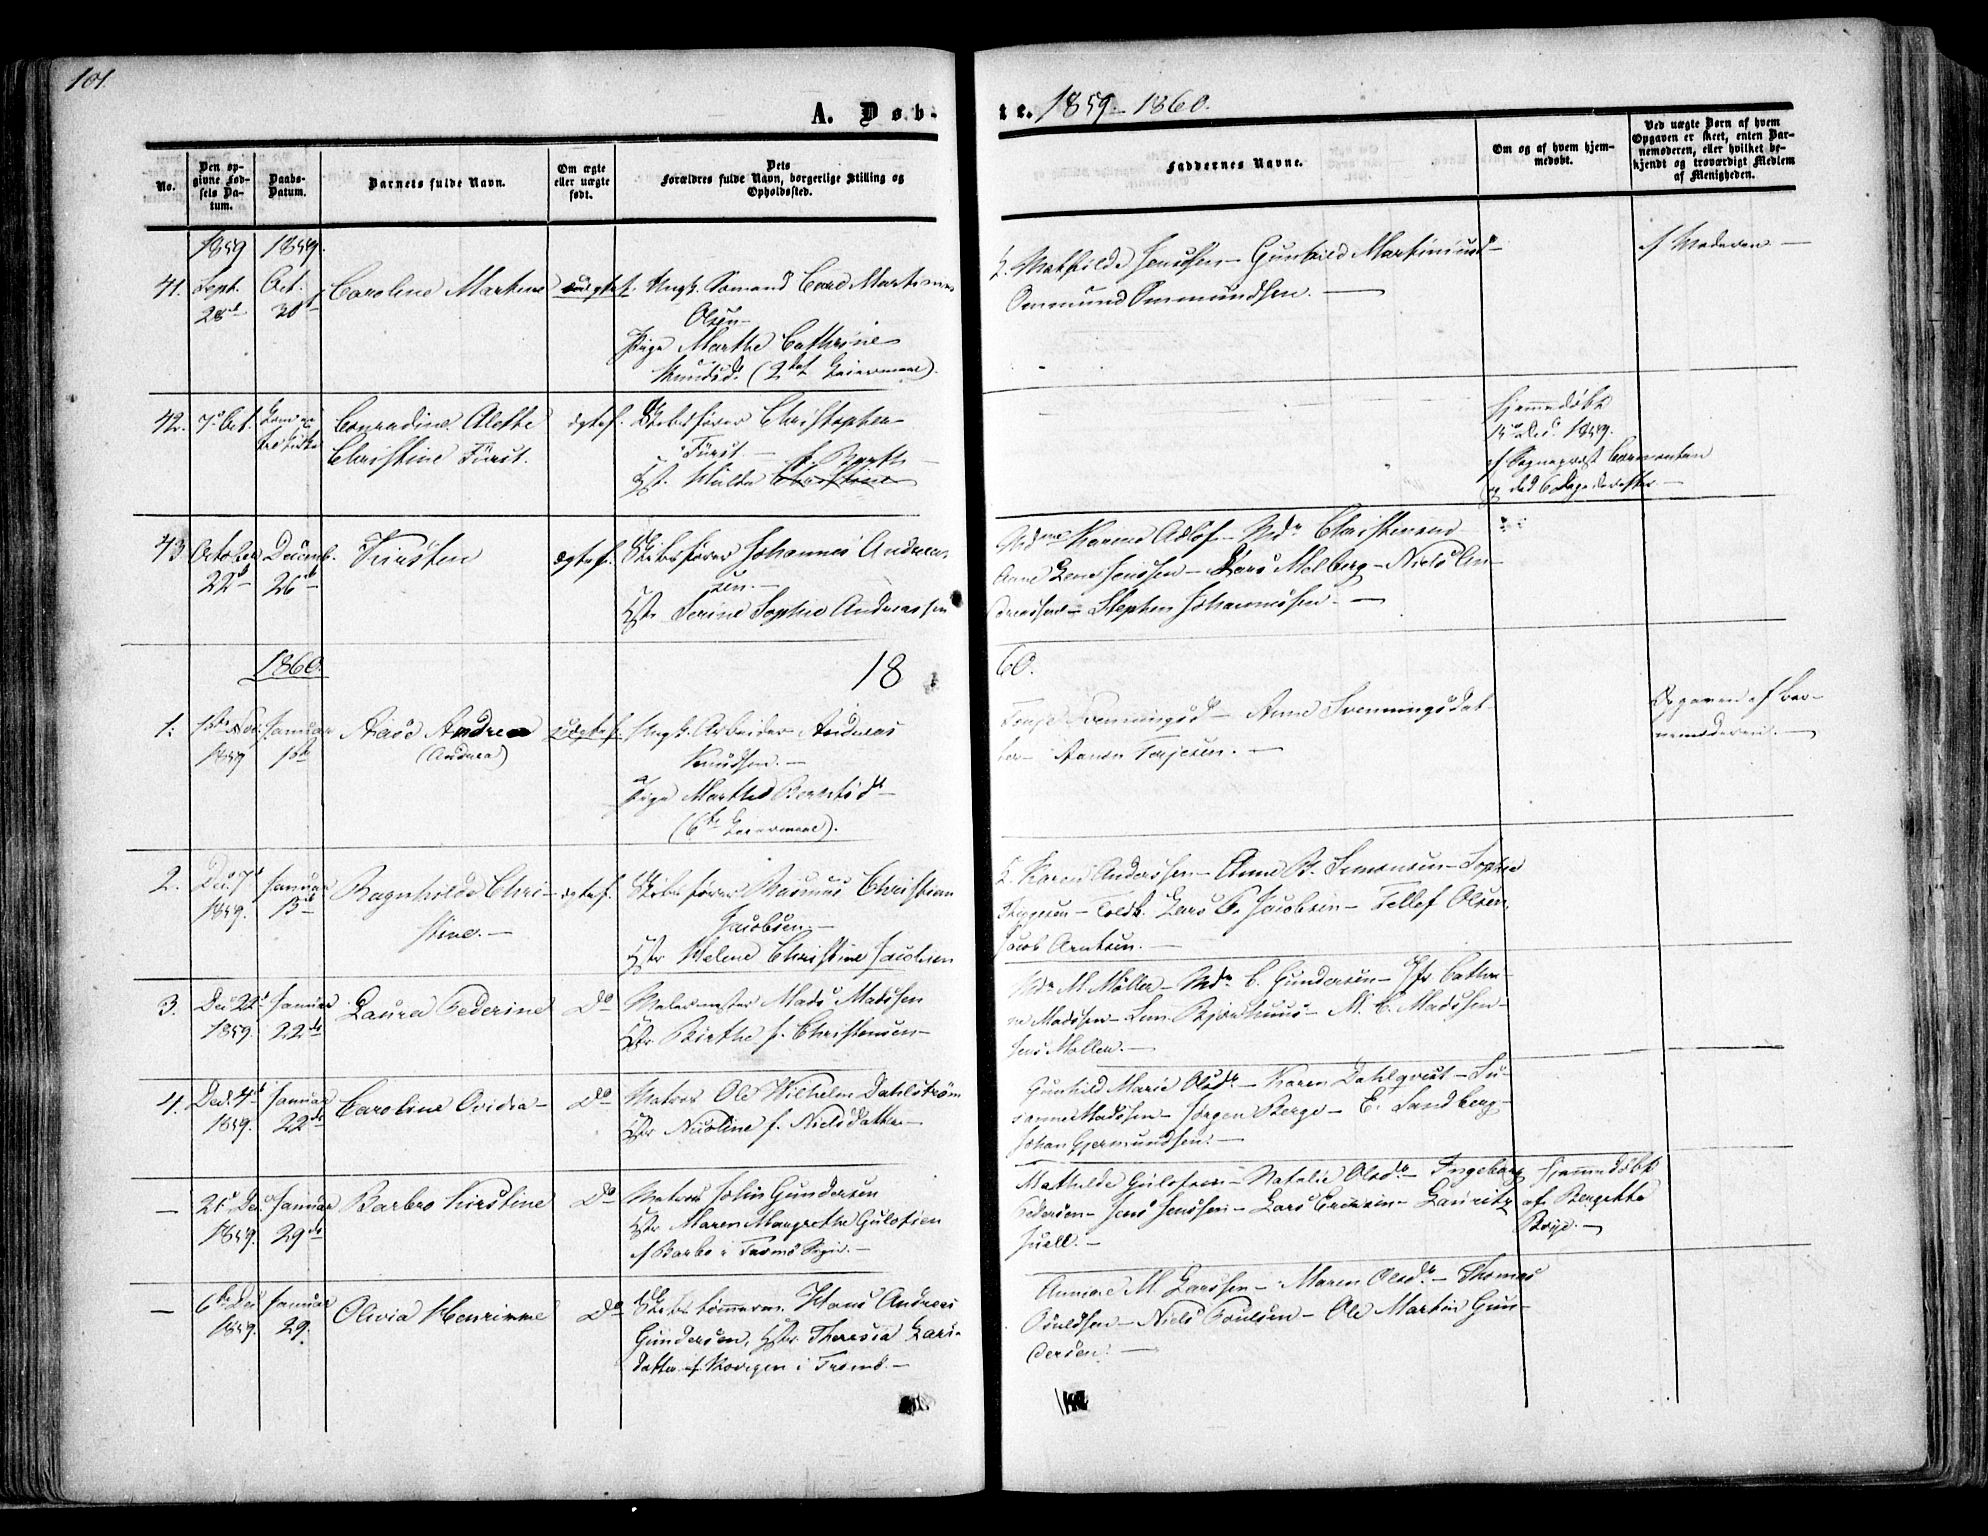 101.
A. Døb-
te. 1859-1860.
No.
Den op-
givne Fød-
sels Da-
tum.
Daabs-
Datum.
Barnets fulde Navn.
Om ægte
eller uægte
født.
Dets
Forældres fulde Navn, borgerlige Stilling og
Opholdssted.
Faddernes Navne.
Om og af hvem hjem-
medøbt.
Ved uægte Børn af hvem
Opgaven er skeet, enten Bar-
nemoderen, eller hvilket be-
kjendt og troværdigt Medlem
af Menigheden.
1859 1859.
41. Sept. 28d Oct. 30t Caroline Martine uægtef. Ungk. Sømand Carl Martinius
Olsen
Pige Marthe Cathrine
Knudsd. (2det Leiermaal).
Mathilde Jenssen - Gunhild
Ommund Ommundsen. -
af Moderen -
42. 7d Oct. Conradine Alette
Christine Fürst.
ægtef. Skibsfører Christopher
Fürst. -
Hst. Hulda
Hjemmedøbt
15d Dec. 1859.
af Sogneprest
og død 6 Dage derefter -
43 October 22d Decemb. 26d Kirsten ægtef. Skibsfører Johannes Andreas-
sen. -
Hstr Serine Sophie Andreassen
Karine Adlof - Christensen
Anne Lene Jenssen - Lars Molberg - Niels An-
dreassen - Stephen Johannessen. -
1860. 18
60.
1. 1859 Januar Aase Andrea
(Andrea)
uægtef. Ungk. Arbeider Andreas
Knudsen. -
Pige Marthe Berntsdr
(6te Leiermaal).
Terje Svenningsd - Anne Svenningsdat-
ter - Terjesen. -
Opgaven af Bar-
nemoderen. -
2. Dec. 7d 1859. Januar 15d Ragnhilde Chri-
stine. -
ægtef. Skibsfører Rasmus Christian
Jacobsen -
Hstr Helene Christine Jacobsen
Karen Anderssen - Anne B. Simonsen - Sophie
Toldb. Lars C. Jacobsen - Tellef Olsen,
Jacob Arntsen. -
3. Dec 22d 1859. Januar 22de Laura Federine Do
Malermester Mads Madssen
Hstr Birthe f. Christensen -
M. Möller - C. Gundersen - Jfr Cathri-
ne Madssen - Bjørnhuus - M. C. Madssen -
Jens Møller. -
4. Dec. 4d 1859. Januar 22de Caroline Ovidia - Do
Matros Ole Wilhelm Dahlström
Hstr Nicoline f. Nielsdatter -
Gunhild Marie Olsdr - Karen Dahlqvist - Su-
sanne Madssen - Jørgen Berge - E. Sandberg -
Johan Gjermundsen. -
- 21d Dec. 1859. Januar 29de Barbro Kirstine Do
Matros John Gundersen
Hstr Maren Margrethe Gulofsen
af Barbo i Tromø Sogn. -
Mathilde Gulofsen - Natalie Olsdr - Ingeborg
Pedersen - Jens Jenssen - Lars Ericksen - Lauritz
Juell. -
Hjemmedøbt
af Bergette
Boye. -
- 6te Dec 1859. Januar 29. Olivia Henrimine Do
Skibstømmerm. Hans Andreas
Gundersen, Hstr Theresia Lars-
datter af i Tromø. -
M. Larssen - Maren Olsdr - Thomas
Poulssen - Niels Poulsen - Ole Martin Gun-
dersen. -